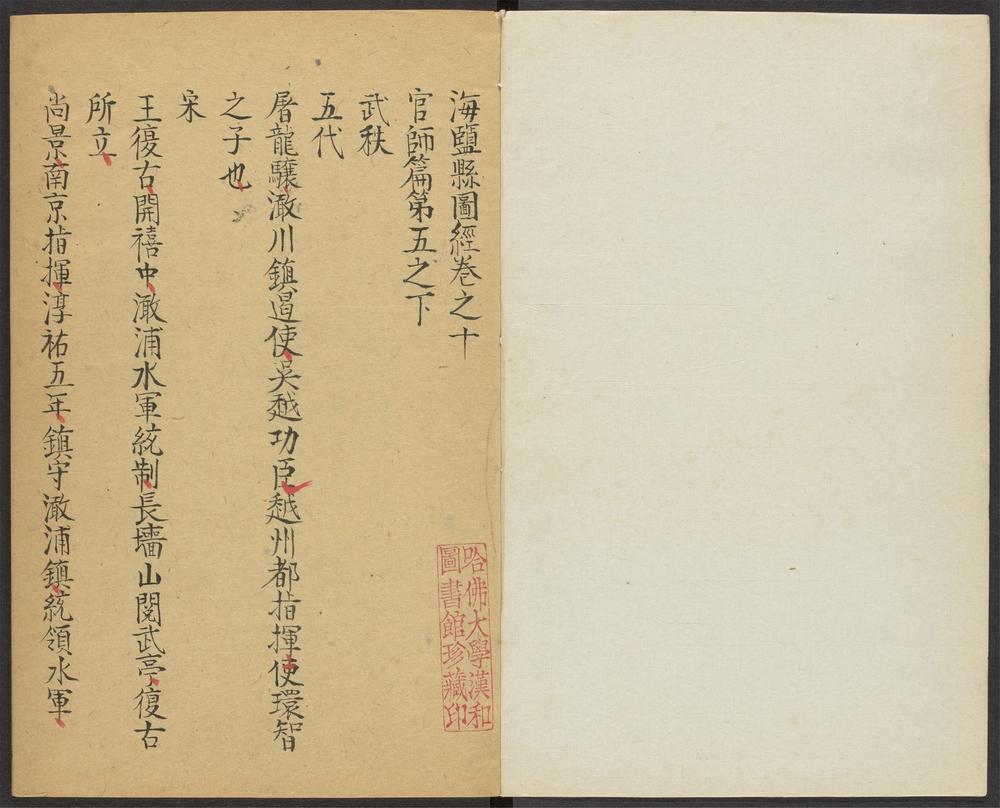 海鹽縣圖經卷之十
官師篇第五之下
武秩
五代
屠龍驤澉川鎮遏使吳越功臣越州都指揮使環智
之子也
宋
王復古開禧中澉浦水軍統制長墻山閱武亭復古
所立
尚景南京指揮淳祐五年鎮守澉浦鎮統領水軍
哈佛大學漢和
圖書館珍藏印